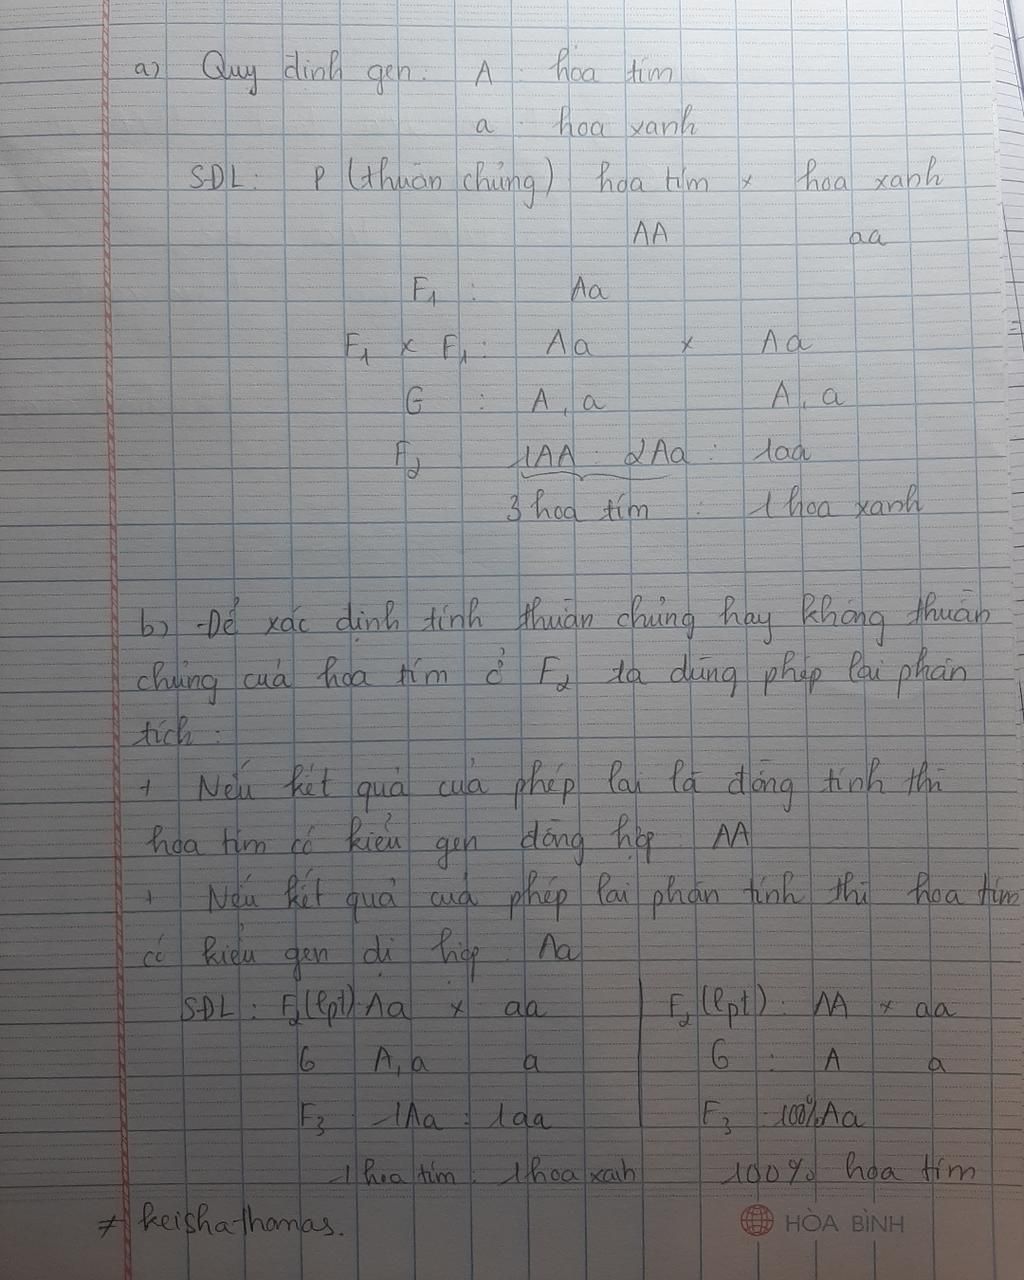 a) Quy định gen: A : hoa tím
a : hoa xanh
SĐL: P (thuần chủng) hoa tím x hoa xanh
AA aa
F1 : Aa
F1 x F1 : Aa x Aa
G : A, a A, a
F2 1AA : 2Aa : 1aa
3 hoa tím : 1 hoa xanh
b) Để xác định tính thuần chủng hay không thuần
chủng của hoa tím ở F2 ta dùng phép lai phân
tích :
+ Nếu kết quả của phép lai là đồng tính thì
hoa tím có kiểu gen đồng hợp AA
+ Nếu kết quả của phép lai phân tính thì hoa tím
có kiểu gen dị hợp Aa
SĐL : F2 (lpt) Aa x aa
G A, a a
F3 1Aa : 1aa
1 hoa tím : 1 hoa xanh
F2 (lpt) : AA x aa
G : A a
F3 100% Aa
100% hoa tím
≠ keisha-thomas.
HÒA BÌNH